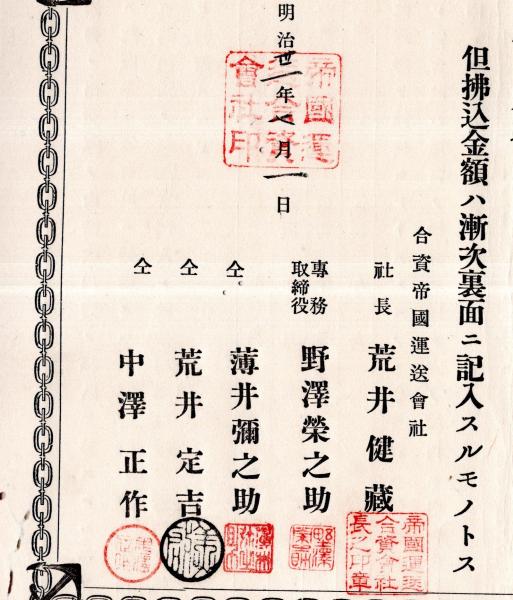 但拂込金額ハ漸次裏面ニ記入スルモノトス
明治廿一年七月一日
合資帝國運送會社
社長 荒井健藏
專務取締役 野澤榮之助
仝 薄井彌之助
仝 荒井定吉
仝 中澤正作
帝國運送合資會社長之印章